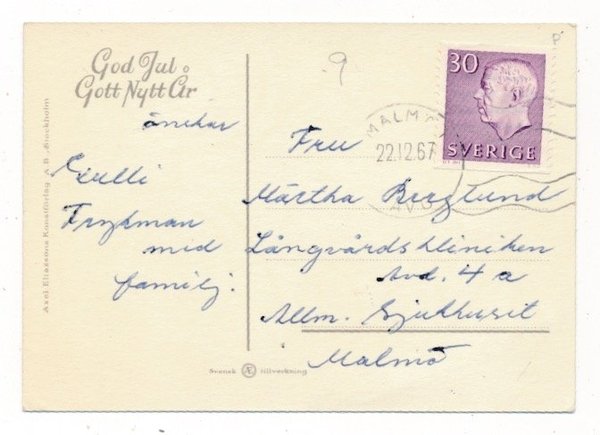 God Jul o
Gott Nytt År
önskar
Frykman
med
familj.
Axel Eliassons Konstförlag A. B., Stockholm
9
P
30
SVERIGE
MALMÖ
22.12.67
Fru
Märtha Berglund
Långvårdskliniken
Avd. 4 a
Allm. Sjukhuset
Malmö
Svensk Æ tillverkning